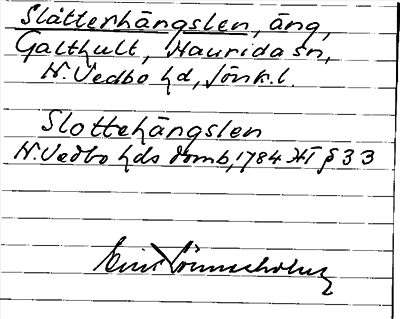 Slåtterhängslen, äng,
Galthult, Hauridasn,
N. Vedbo hd, Jönk.l.
Slottehängslen
N. Vedbo hds domb, 1784 HT § 33